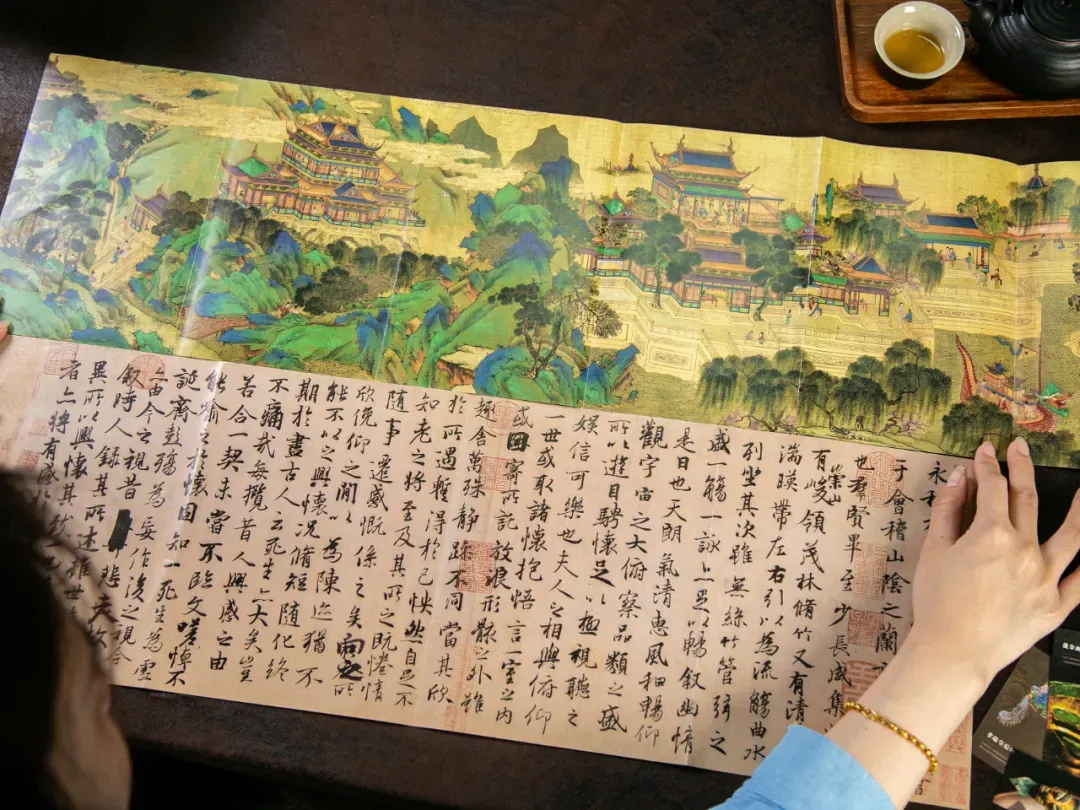 永和
于會稽山陰之蘭
也羣賢畢至少長咸集
有崇山峻領茂林脩竹又有清
湍暎帶左右引以為流觴曲水
列坐其次雖無絲竹管弦之
盛一觴一詠亦足以暢敘幽情
是日也天朗氣清惠風和暢仰
觀宇宙之大俯察品類之盛
所以遊目騁懷足以極視聽之
娛信可樂也夫人之相與俯仰
一世或取諸懷抱悟言一室之內
或因寄所託放浪形骸之外雖
趣舍萬殊靜躁不同當其欣
於所遇蹔得於己怏然自足不
知老之將至及其所之既惓情
隨事遷感慨係之矣向之所
欣俛仰之閒以為陳迹猶不
能不以之興懷況脩短隨化終
期於盡古人云死生亦大矣豈
不痛哉每攬昔人興感之由
若合一契未嘗不臨文嗟悼不
能喻之於懷固知一死生為虛
誕齊彭殤為妄作後之視今
亦由今之視昔悲夫故
敘時人錄其所述雖世
異所以興懷其致一
者亦將有感於